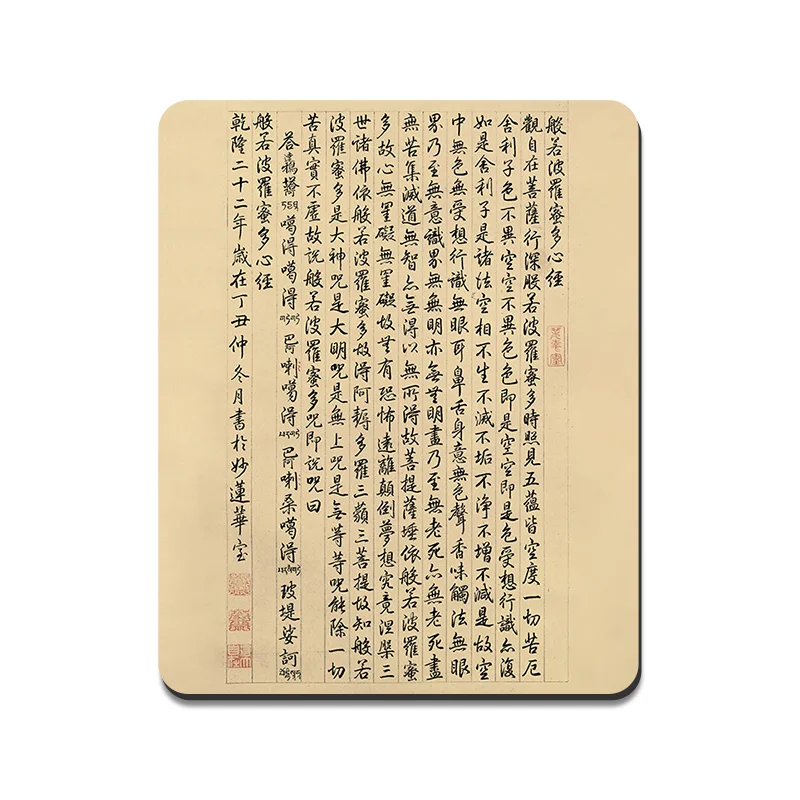 般若波羅蜜多心經
觀自在菩薩行深般若波羅蜜多時照見五蘊皆空度一切苦厄
舍利子色不異空空不異色色即是空空即是色受想行識亦復
如是舍利子是諸法空相不生不滅不垢不淨不增不減是故空
中無色無受想行識無眼耳鼻舌身意無色聲香味觸法無眼
界乃至無意識界無無明亦無無明盡乃至無老死亦無老死盡
無苦集滅道無智亦無得以無所得故菩提薩埵依般若波羅蜜
多故心無罣礙無罣礙故無有恐怖遠離顛倒夢想究竟涅槃三
世諸佛依般若波羅蜜多故得阿耨多羅三藐三菩提故知般若
波羅蜜多是大神呪是大明呪是無上呪是無等等呪能除一切
苦真實不虛故說般若波羅蜜多呪即說呪曰
噶得噶得巴阿喇噶得巴阿喇桑噶得玻堤娑訶
般若波羅蜜多心經
乾隆二十二年歲在丁丑仲冬月書於妙蓮華室